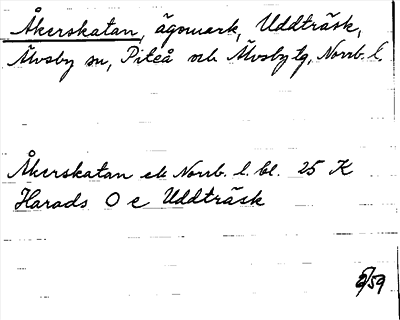 Åkerskatan, ägomark, Uddträsk,
Älvsby sn, Piteå och Älvsby tg, Norrb. l.
Åkerskatan ek Norrb. l. bl. 25 K
Harads O c Uddträsk
5/59